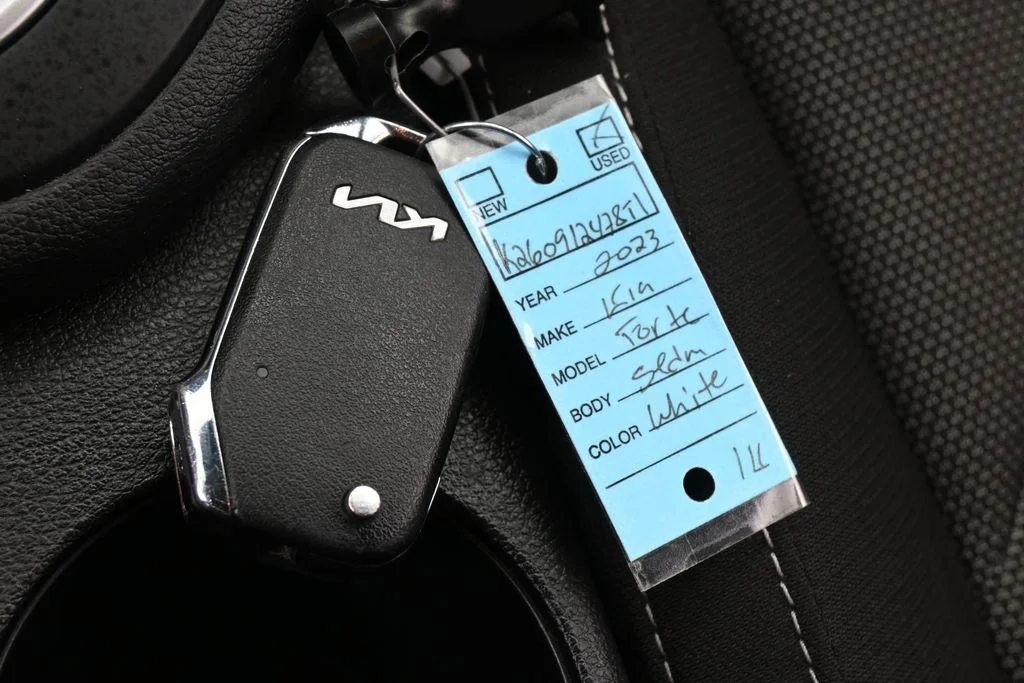 KIA
NEW
USED
K260912478T1
YEAR 2023
MAKE Kia
MODEL Forte
BODY Sedan
COLOR White
1K